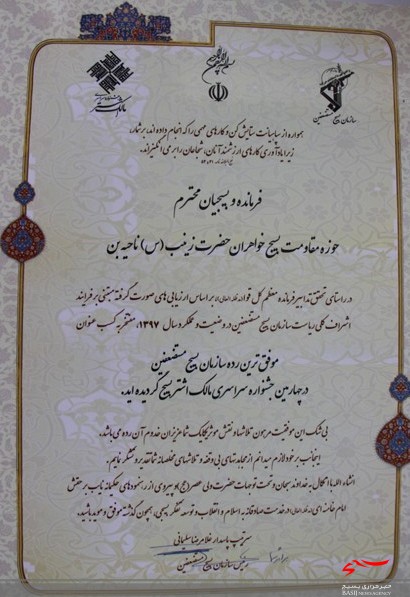 بسم الله الرحمن الرحیم
سازمان بسیج مستضعفین
مالک اشتر
همواره از سپاسیانت ستایش کن و کارهای مهمی را که انجام داده اند، بر شمار،
زیرا یادآوری کارهای ارزشمند آنان، شجاعان را بر می انگیزاند.
فرمانده و بسیجیان محترم
حوزه مقاومت بسیج خواهران حضرت زینب (س) ناحیه بن
در راستای تحقق تدابیر فرمانده معظم کل قوا (مدظله العالی) بر اساس ارزیابی های صورت گرفته مبتنی بر فرایند
اشراف کلی ریاست سازمان بسیج مستضعفین در وضعیت و عملکرد سال ۱۳۹۷، مفتخر به کسب عنوان
موفق ترین رده سازمان بسیج مستضعفین
در چهارمین جشنواره سراسری مالک اشتر بسیج گردیده اید.
بی شک این موفقیت مرهون تلاشها و نقش موثر یکایک شما عزیزان خدوم آن رده می باشد.
اینجانب بر خود لازم میدانم از مجاهدتهای بی وقفه و تلاشهای مخلصانه شما تقدیر و تشکر نمایم.
انشاء الله با اتکال به خداوند سبحان و تحت توجهات حضرت ولی عصر (عج) و پیروی از رهنمودهای حکیمانه نایب بر حقش
امام خامنه ای (مدظله العالی) در خدمت صادقانه به اسلام و انقلاب و توسعه تفکر بسیجی، همچون گذشته موفق و موید باشید.
سرتیپ پاسدار غلامرضا سلیمانی
رئیس سازمان بسیج مستضعفین
خبرگزاری بسیج
BASIJ NEWS AGENCY